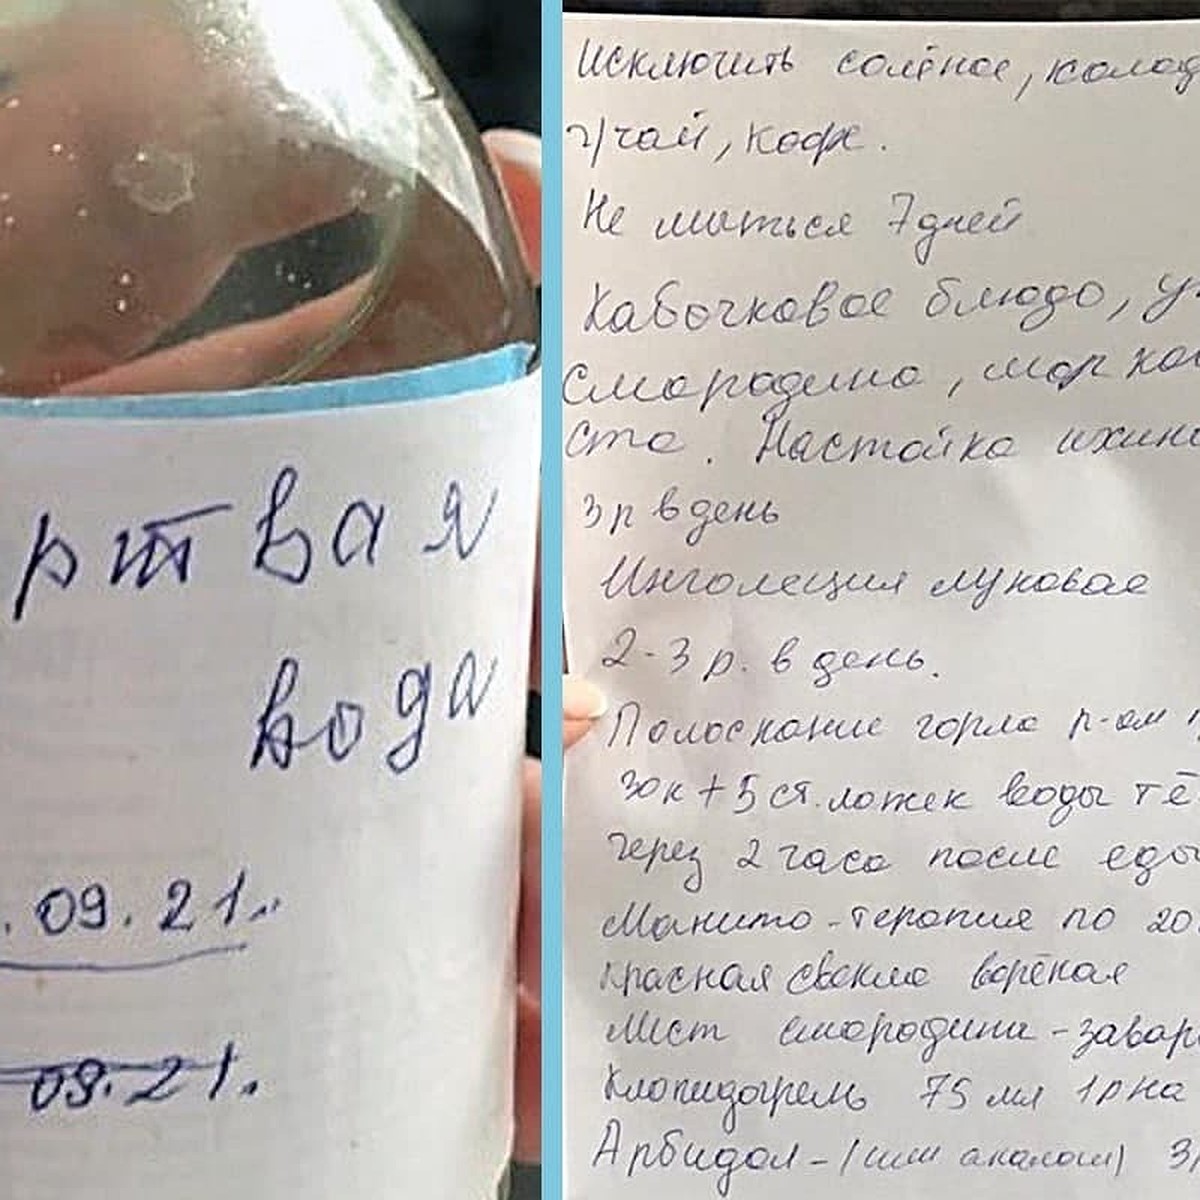 ртвая
вода
. 09. 21г.
09. 21г.
Исключить солёное, холод
г/чай, кофе.
Не мыться 7 дней
Кабочковое блюдо,
Смородина, мор
ста. Настойка ихин
3 р в день
Инголеция луковая
2-3 р. в день.
Полоскание горла р-ом
зок + 5 ст. ложек воды тё
Через 2 часа после еды
Манито-терапия по 20
Красная свекла варёная
Лист смородины - завар
Клопидогрель 75 мл 1 р на
Арбидол - (или аналоги) 3